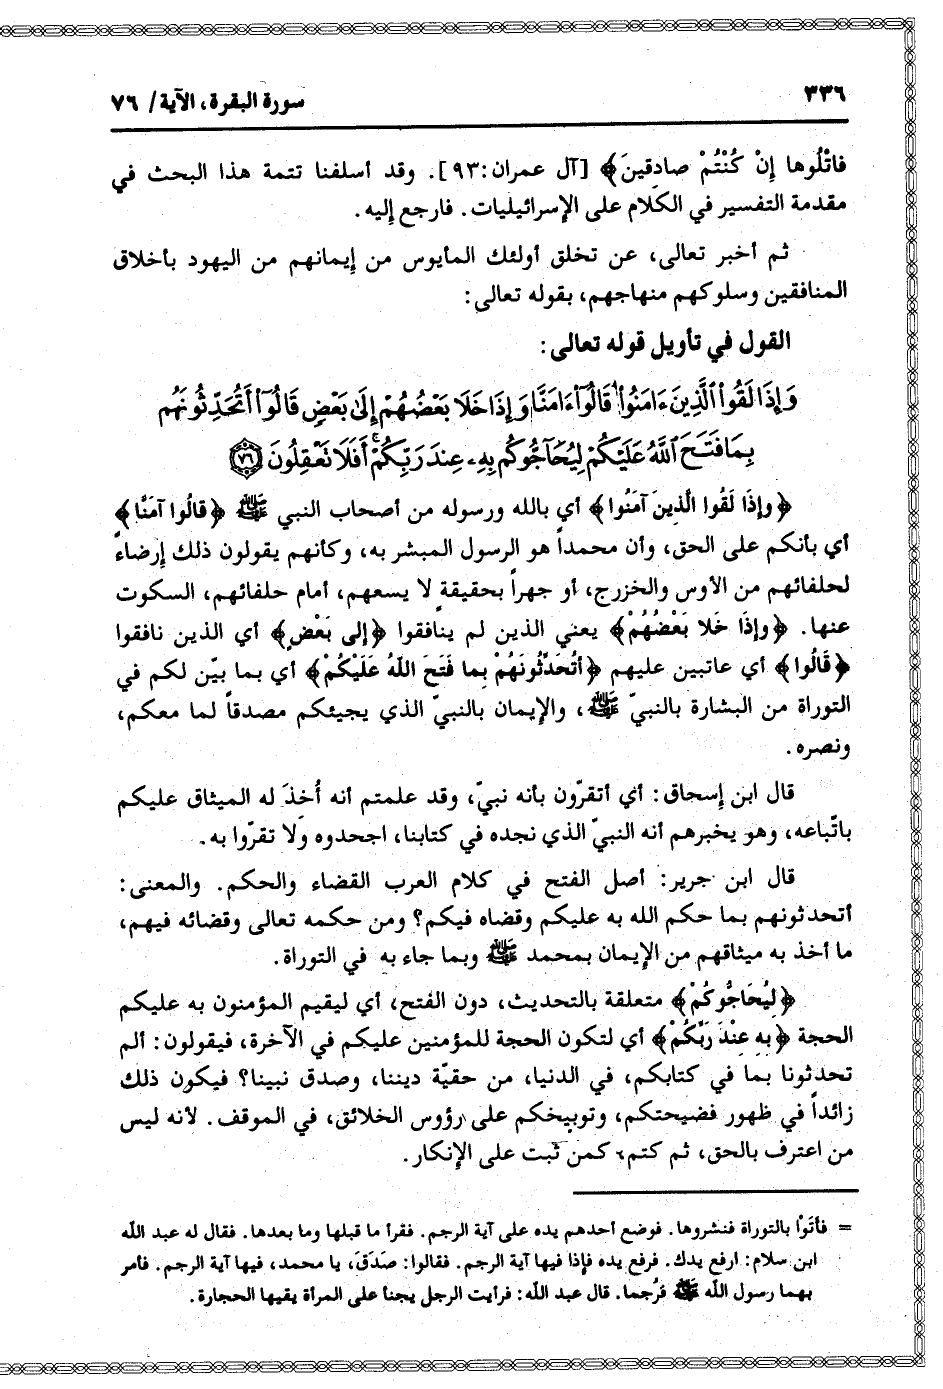 ٣٣٦
سورة البقرة، الآية/ ٧٦
فاتْلُوها إنْ كُنْتُمْ صادِقينَ﴾ [آل عمران:٩٣]. وقد أسلفنا تتمة هذا البحث في
مقدمة التفسير في الكلام على الإسرائيليات. فارجع إليه.
ثم أخبر تعالى، عن تخلق أولئك المأيوس من إيمانهم من اليهود بأخلاق
المنافقين وسلوكهم منهاجهم، بقوله تعالى:
القول في تأويل قوله تعالى:
وَإِذَا لَقُوا۟ ٱلَّذِينَ ءَامَنُوا۟ قَالُوٓا۟ ءَامَنَّا وَإِذَا خَلَا بَعْضُهُمْ إِلَىٰ بَعْضٍ قَالُوٓا۟ أَتُحَدِّثُونَهُم
بِمَا فَتَحَ ٱللَّهُ عَلَيْكُمْ لِيُحَآجُّوكُم بِهِۦ عِندَ رَبِّكُمْ ۚ أَفَلَا تَعْقِلُونَ ﴿٧٦﴾
﴿وإذَا لَقُوا الَّذِينَ آمَنُوا﴾ أي بالله ورسوله من أصحاب النبي ﷺ ﴿قالُوا آمَنَّا﴾
أي بأنكم على الحق، وأن محمداً هو الرسول المبشر به، وكأنهم يقولون ذلك إرضاءً
لحلفائهم من الأوس والخزرج، أو جهراً بحقيقةٍ لا يسعهم، أمام حلفائهم، السكوت
عنها. ﴿وإذَا خَلا بَعْضُهُمْ﴾ يعني الذين لم ينافقوا ﴿إلى بَعْضٍ﴾ أي الذين نافقوا
﴿قَالُوا﴾ أي عاتبين عليهم ﴿أتُحَدِّثُونَهُمْ بِما فَتَحَ اللَّهُ عَلَيْكُمْ﴾ أي بما بيّن لكم في
التوراة من البشارة بالنبيّ ﷺ، والإيمان بالنبيّ الذي يجيئكم مصدقاً لما معكم،
ونصره.
قال ابن إسحاق: أي أتقرّون بأنه نبيّ، وقد علمتم أنه أُخذَ له الميثاق عليكم
باتّباعه، وهو يخبرهم أنه النبيّ الذي نجده في كتابنا، اجحدوه ولا تقرّوا به.
قال ابن جرير: أصل الفتح في كلام العرب القضاء والحكم. والمعنى:
أتحدثونهم بما حكم الله به عليكم وقضاه فيكم؟ ومن حكمه تعالى وقضائه فيهم،
ما أخذ به ميثاقهم من الإيمان بمحمد ﷺ وبما جاء به في التوراة.
﴿لِيُحَاجُّوكُمْ﴾ متعلقة بالتحديث، دون الفتح، أي ليقيم المؤمنون به عليكم
الحجة ﴿بِهِ عِنْدَ رَبِّكُمْ﴾ أي لتكون الحجة للمؤمنين عليكم في الآخرة، فيقولون: ألم
تحدثونا بما في كتابكم، في الدنيا، من حقيّة ديننا، وصدق نبينا؟ فيكون ذلك
زائداً في ظهور فضيحتكم، وتوبيخكم على رؤوس الخلائق، في الموقف. لأنه ليس
من اعترف بالحق، ثم كتم، كمن ثبت على الإنكار.
= فأتَوْا بالتوراة فنشروها. فوضع أحدهم يده على آية الرجم. فقرأ ما قبلها وما بعدها. فقال له عبد اللّه
ابن سلام: ارفع يدك. فرفع يده فإذا فيها آية الرجم. فقالوا: صَدَقَ، يا محمد، فيها آية الرجم. فأمر
بهما رسول اللّه ﷺ فرُجما. قال عبد اللّه: فرأيت الرجل يجنأ على المرأة يقيها الحجارة.